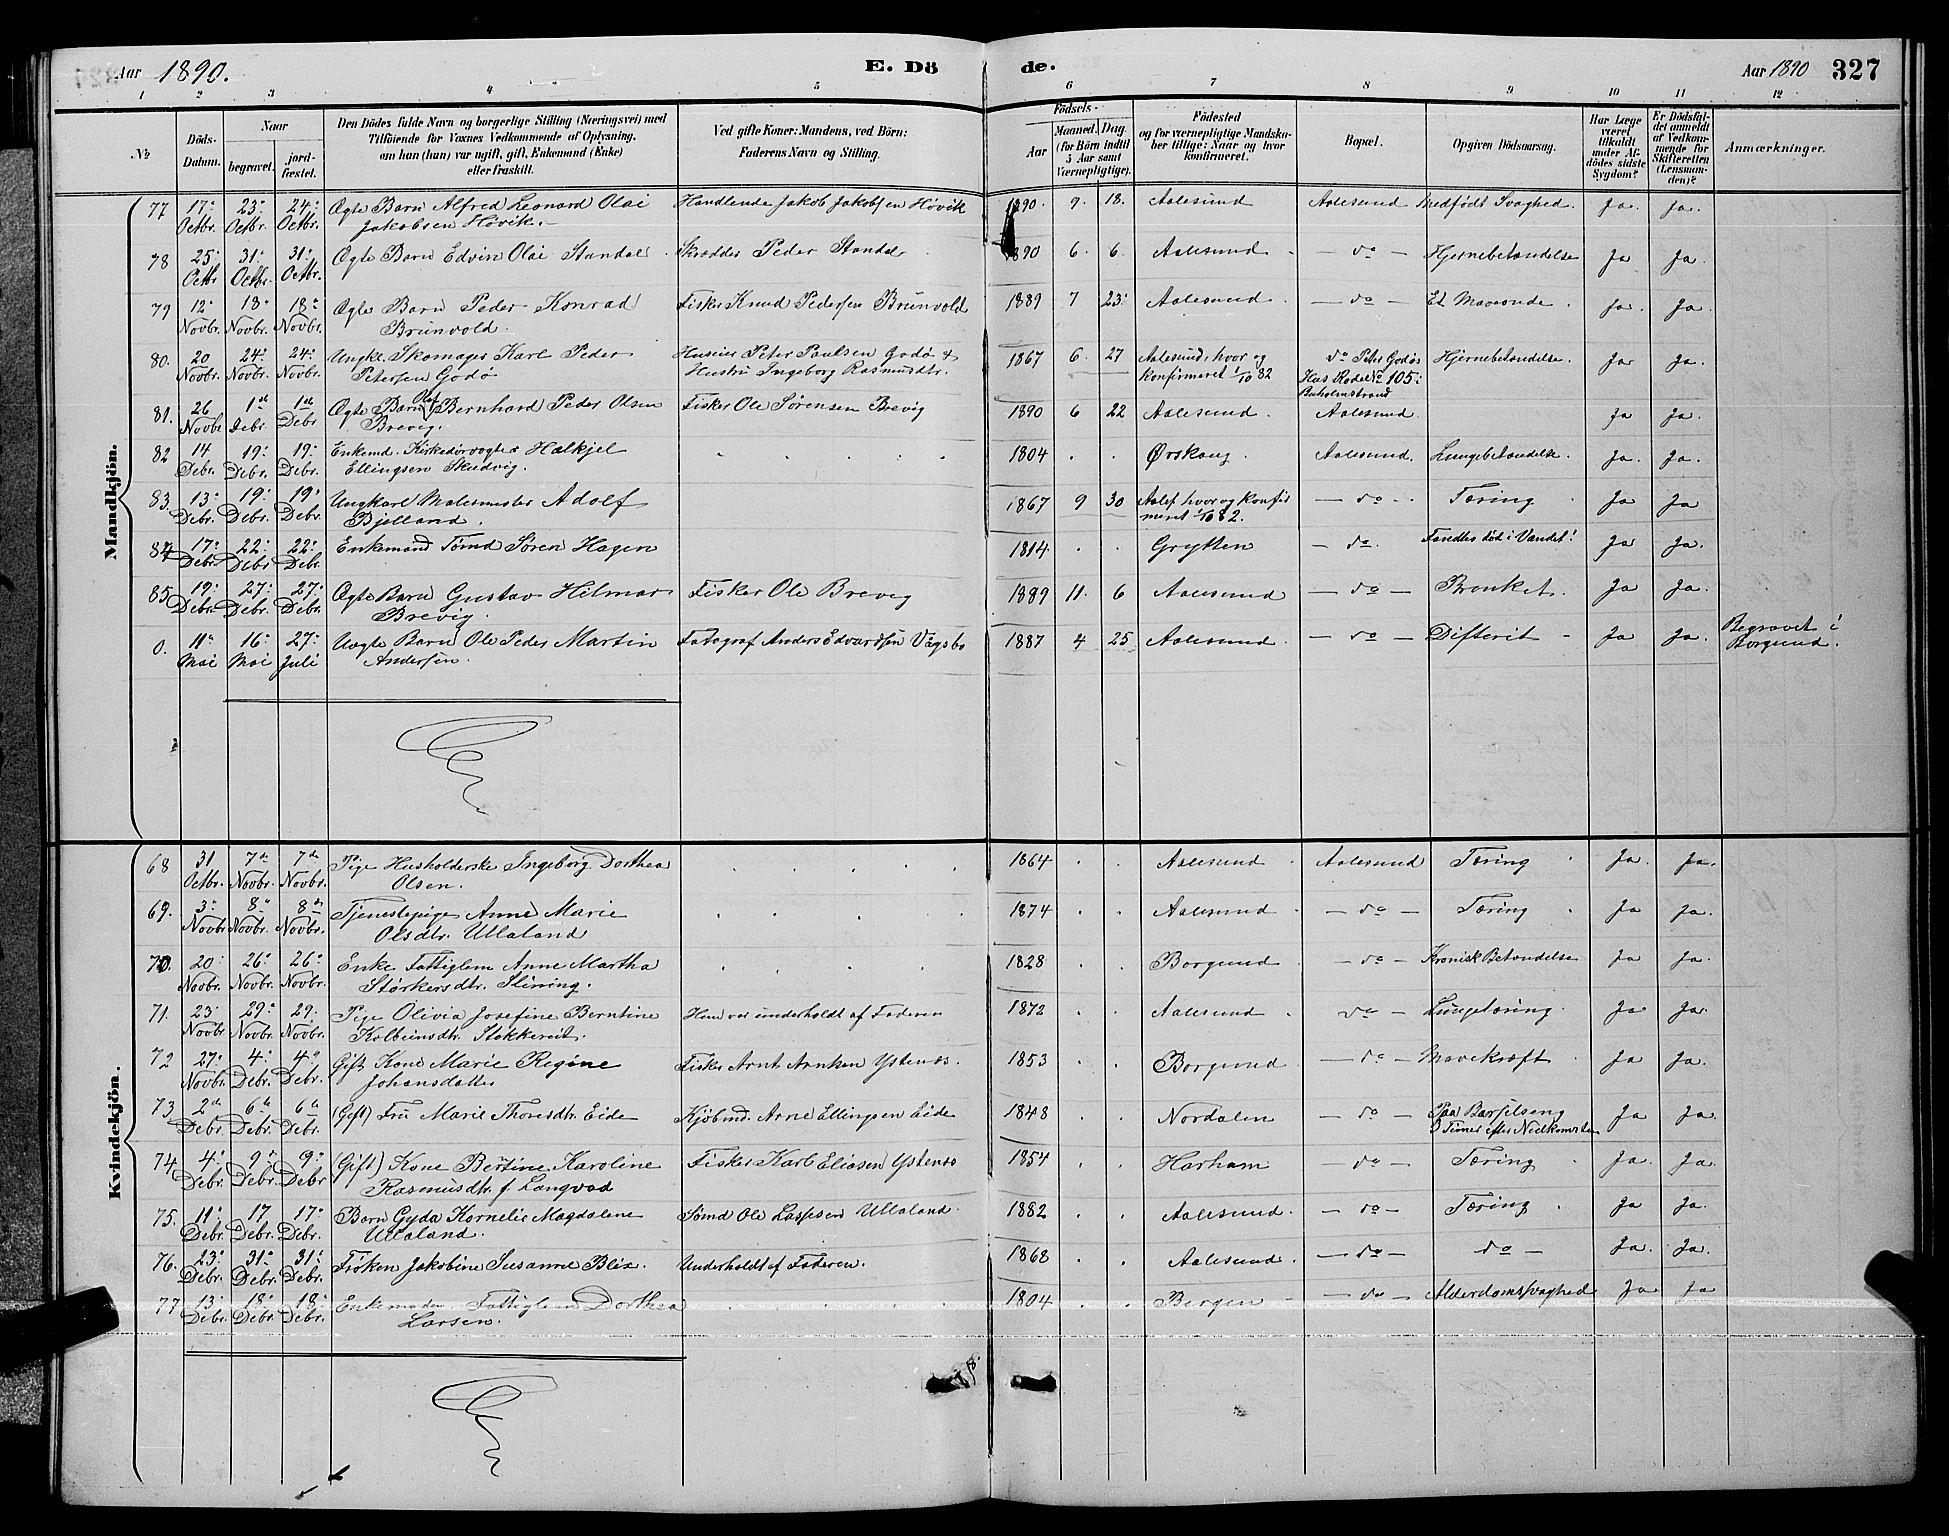 Aar 1890.
E. Dö
de.
Aar 1890
327
1 2 3 4 5 6 7 8 9 10 11 12
No
Döds-Datum.
Naar
begravet.
jord-fæstet.
Den Dödes fulde Navn og borgerlige Stilling (Næringsvei) med
Tilföiende for Voxnes Vedkommende af Oplysning,
om han (hun) var ugift, gift, Enkemand (Enke)
eller fraskilt.
Ved gifte Koner: Mandens, ved Börn:
Faderens Navn og Stilling.
Födsels-
Aar
Maaned. Dag
(for Börn indtil
5 Aar samt
Værnepligtige).
Födested
og for værnepligtige Mandska-
ber tillige: Naar og hvor
konfirmeret.
Bopæl.
Opgiven Dödsaarsag.
Har Læge
været
tilkaldt
under Af-
dödes sidste
Sygdom?
Er Dödsfal-
det anmeldt
af Vedkom-
mende for
Skifteretten
(Lensman-
den)?
Anmærkninger.
Mandkjön.
77 17: Octbr. 23: Octbr. 24: Octbr. Ægte Barn Alfred Leonard Olai Handlende Jakob Jakobsen Hövik 1890. 9. 18. Aalesund Aalesund Medfödt Svaghed. Ja. Ja.
Jakobsen Hövik.
78 25: Octbr 31: Octbr. 31: Octbr. Ægte Barn Edvin Olai Standal Skrædder Peder Standal 1890 6. 6 Aalesund do Hjernebetændelse Ja Ja.
79 12: Novbr. 18: Novbr. 18: Novbr. Ægte Barn Peder Konrad Fisker Knud Pedersen Brunvold 1889 7 23: Aalesund do Et Maveonde. Ja. Ja.
Brunvold.
80. 20 Novbr. 24: Novbr. 24: Novbr. Ungkr. Skomager Karl Peder Huseier Peter Paulsen Godö & 1867 6. 27 Aalesund, hvor og do Peter Godös Hjernebetændelse. Ja Ja.
Petersen Godö Hustru Ingeborg Rasmusdtr. konfirmeret 1/10 82 Hus Rode No 105 i
Buholmstrand
81. 26 Novbr 1ste Debr. 1ste Debr Ægte Barn Olaf Bernhard Peder Olsen Fisker Ole Sörensen Brevig 1890 6 22 Aalesund. Aalesund. Ja Ja.
Brevig.
82 14 Debr. 19: Debr. 19: Debr. Enkemd. Kirkedörvogter Halkjel 1804 Örskoug. Aalesund. Lungebetændelse. Ja. Ja.
Ellingsen Skudvig.
83. 13: Debr. 19: Debr. 19: Debr. Ungkarl Malermester Adolf 1867 9 30 Aales hvor og konfir do Tæring Ja Ja
Bjelland. meret 1/10 82.
84 17: Debr. 22: Debr 22: Debr. Enkemand Tömd Sören Hagen 1814 Grytten do Fandtes död i Vandet! Ja Ja.
85 19: Debr. 27: Debr. 27: Debr. Ægte Barn Gustav Hilmar Fisker Ole Brevig 1889 11. 6 Aalesund do Bronket. Ja Ja.
Brevig.
0. 11: Mai 16: Mai 27: Juli Uægte Barn Ole Peder Martin Fotograf Anders Edvardsen Vägsbo 1887 4 25 Aalesund do Difterit Ja Ja. Begravet i
Andersen. Borgund.
Kvindekjön.
68 31 Octbr. 7de Novbr. 7de Novbr. Pige Husholderske Ingeborg Dorthea 1864 Aalesund Aalesund Tæring Ja. Ja.
Olsen.
69. 3: Novbr 8: Novbr. 8de Novbr. Tjenestepige Anne Marie 1874 Aalesund do Tæring Ja Ja.
Olsdtr. Ullaland
70. 20: Novbr. 26: Novbr. 26: Novbr. Enke Fattiglem Anne Martha 1828 Borgund do Kronisk Betændelse Ja Ja.
Störkersdtr.
71. 23 Novbr 29: Novbr. 29: Novbr. Pige Olivia Josefine Berntine Hun var underholdt af Faderen 1872 Aalesund do Lungetæring. Ja Ja.
Kolbeinsdtr. Stokkereit.
72 27: Novbr. 4: Debr. 4de Debr. Gift Kone Marie Regine Fisker Arnt Arntsen Ystenæs. 1853 Borgund do Mavekræft Ja Ja.
Johansdatter
73 2de Debr. 6te Debr. 6te Debr. (Gift) Fru Marie Thoresdtr. Eide Kjöbmd. Arne Ellingsen Eide 1848 Nordalen do Paa Barselseng Ja Ja.
3 Timer efter Nedkomsten
74 4: Debr. 9: Debr. 9: Debr (Gift) Kone Bertine Karoline Fisker Karl Eliasen Ystenæs 1854 Harham do Tæring Ja. Ja.
Rasmusdtr. f. Langvad
75. 11: Debr. 17 Debr. 17: Debr. Barn Gyda Kornelie Magdalene Sömd Ole Lassesen Ullaland. 1882 Aalesund. do Tæring Ja Ja.
Ullaland.
76. 23: Debr. 31: Debr. 31: Debr. Fröken Jakobine Susanne Blix. Underholdt af Faderen. 1868 Aalesund. do do Ja. Ja.
77 13: Debr. 18: Debr. 18: Debr. Fattiglem Dorthea 1804 Bergen do Alderdomssvaghed Ja Ja
Larsen.